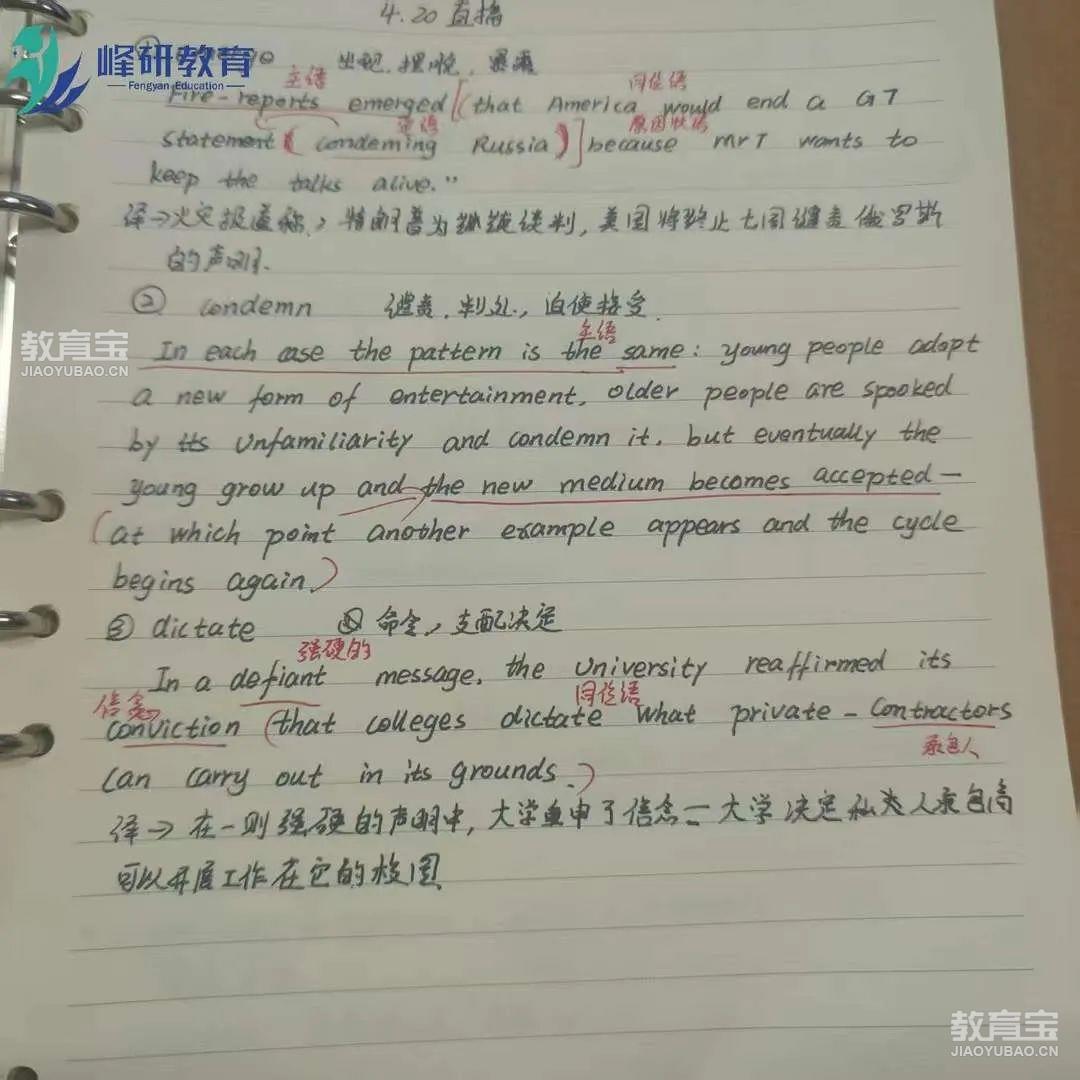 4.20直播
峰研教育
Fengyan Education
① 出现,摆脱,暴露
主语 同位语
Fire-reports emerged [(that America would end a G7
定语 原因状语
statement (condeming Russia)] because Mr T wants to
keep the talks alive."
译→火灾报道称,特朗普为继续谈判,美国将终止七国谴责俄罗斯
的声明.
② condemn 谴责,判处,迫使接受
主语
In each case the pattern is the same: young people adopt
教育宝
JIAOYUBAO.CN
a new form of entertainment, older people are spooked
by its unfamiliarity and condemn it, but eventually the
young grow up and the new medium becomes accepted—
(at which point another example appears and the cycle
begins again.)
③ dictate 命令,支配决定
强硬的
In a defiant message, the university reaffirmed its
信念 同位语
conviction (that colleges dictate what private-contractors
承包人
can carry out in its grounds.)
译→在一则强硬的声明中,大学重申了信念—大学决定私人承包商
可以开展工作在它的校园
教育宝
JIAOYUBAO.CN